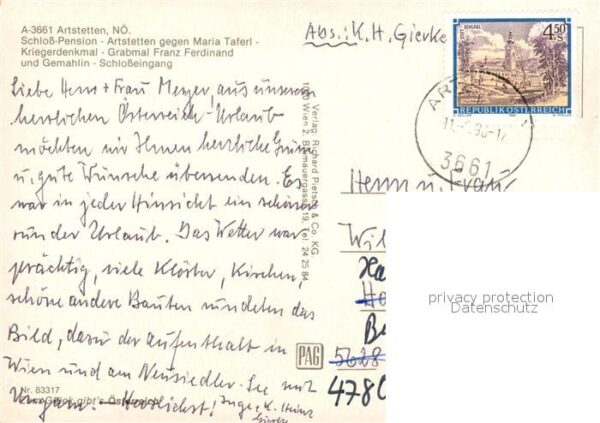 A-3661 Artstetten, NÖ.
Schloß-Pension - Artstetten gegen Maria Taferl -
Kriegerdenkmal - Grabmal Franz Ferdinand
und Gemahlin - Schloßeingang
Liebe Herr + Frau Meyer, aus unserem
herrlichen Österreich-Urlaub
möchten wir Ihnen herzliche Grüße
u. gute Wünsche übersenden. Es
war in jeder Hinsicht ein schöner
runder Urlaub. Das Wetter war
prächtig, viele Klöster, Kirchen,
schöne andere Bauten rundeten das
Bild, dazu der Aufenthalt in
Wien und am Neusiedler-See mit
Ungarn. - Herzlichst! Inge u. K. Heinz
Gierke
Nr. 83317
gibt's Österreich!
Verlag: Richard Pietsch & Co. KG.
1020 Wien 2, 19, Tel. 24 25 84
PAG
Abs.: K. H. Gierke
4,50 S
STIFT SCHLÄGL
REPUBLIK ÖSTERREICH
3661
Herrn u. Frau
Wil
Ha
Be
5628
4780
privacy protection
Datenschutz